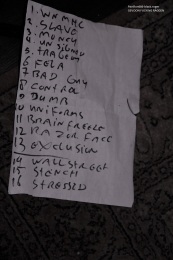 1. WNMHC
2. SLAVE
3. MONEY
4. UNSIGNED
5. TRAGEDY
6 FELA
7 BAD GUY
8 CONTROL
9 DUMB
10 UNIFORMS
11 BRAINFREEZE
12 RAZOR FACE
13 EXCLUSION
14 WALLSTREET
15 STENCH
16 STRESSED